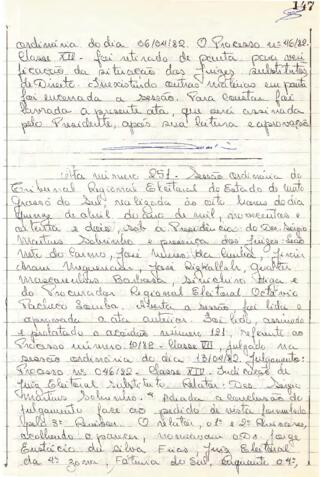 147
ordinária do dia 06/04/82. O Processo nº 46/82.
Classe XII - foi retirado de pauta para veri
ficação da situação dos Juízes substitutos
de Direito. Inexistindo outras matérias em pauta
foi encerrada a sessão. Para constar foi
lavrada a presente ata, que será assinada
pelo Presidente, após sua leitura e aprovação.
Ata número 251. Sessão ordinária do
Tribunal Regional Eleitoral do Estado de Mato
Grosso do Sul, realizada às oito horas do dia
quinze de abril do ano de mil, novecentos e
oitenta e dois, sob a Presidência do Des. Sergio
Martins Sobrinho e presença dos Juízes: Leão
Neto do Carmo, José Nunes da Cunha,
Higa e
do Procurador Regional Eleitoral Octávio
Pacheco Aberta a sessão foi lida e
aprovada a ata anterior. Foi lido, assinado
e publicado o acórdão número 121, referente ao
Processo número 10/82 - Classe VII, julgado na
sessão ordinária do dia 13/04/82. Julgamento:
Processo nº 046/82 - Classe XII - Indicação de
Juiz Eleitoral Substituto. Relator: Des. Sergio
Martins Sobrinho. Adiada a conclusão do
julgamento face ao pedido de vista formulado
pelo 3º O relator, o 1º e 2º
acolhendo o parecer, nomeavam o Dr. Jorge
Eustácio da Silva Frias, Juiz Eleitoral
da 4ª zona, Fátima do Sul, enquanto o 4º,